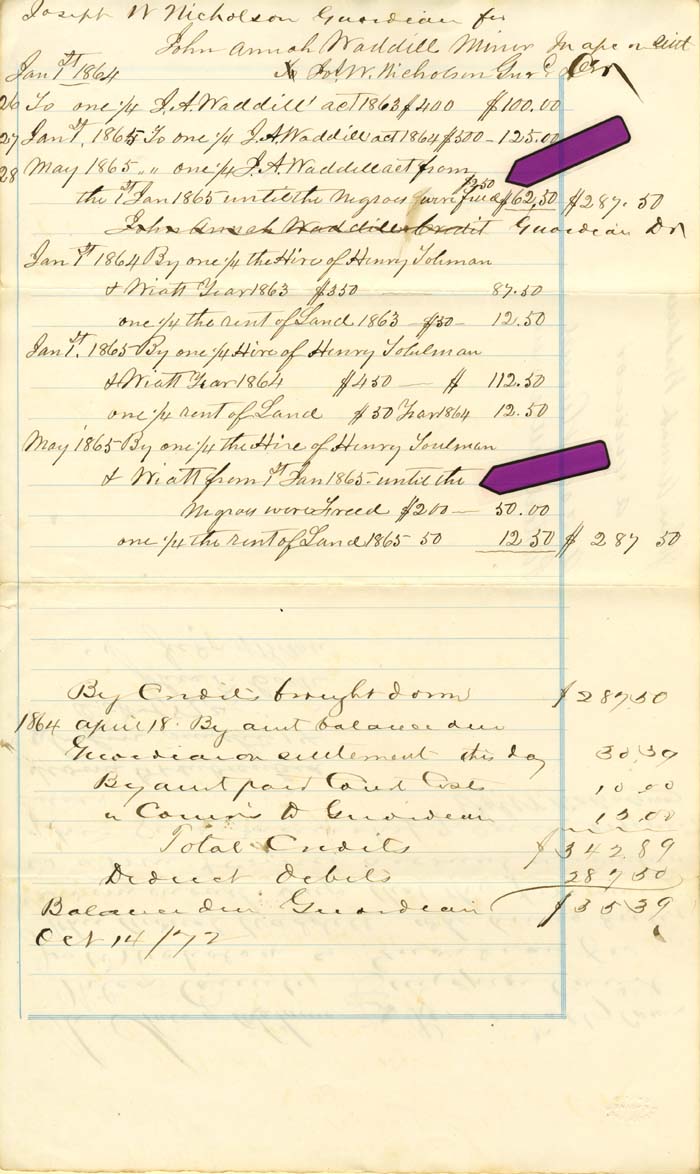 Joseph W Nicholson Guardian for
John Annah Waddill Minor In apc n
Jan 1st 1864 Jos W. Nicholson Gur Cr
26 To one ¼ J. A. Waddill act 1863 $400 $100.00
27 Jan 1st, 1865 To one ¼ J. A. Waddill act 1864 $500 - 125.00
28 May 1865 ,, ,, one ¼ J. A. Waddill act from
the 1st Jan 1865 until the Negroes were freed $62,50 $287.50
John Annah Waddill Credit Guardian Dr
Jan 1st 1864 By one ¼ the Hire of Henry Tolmman
& Wiatt Year 1863 $350 87.50
one ¼ the rent of Land 1863 - $50 - 12.50
Jan 1st. 1865 By one ¼ Hire of Henry Tolulman
& Wiatt Year 1864 $450 — $ 112.50
one ¼ rent of Land $50 Year 1864 12.50
May 1865 By one ¼ the Hire of Henry Toulman
& Wiatt from 1st Jan 1865 - until the
Negroes were Freed $200 — 50.00
one ¼ the rent of Land 1865 50 12 50 $ 287 50
By Credits brought down $ 287 50
1864 april 18. By amt balance due
Guardian on settlement this day 30 39
By amt paid Court Cost 10 00
" Comis to Guardian 15 00
Total Credits $ 342 89
Deduct debits 287 50
Balance due Guardian $ 35 39
Oct 14/72